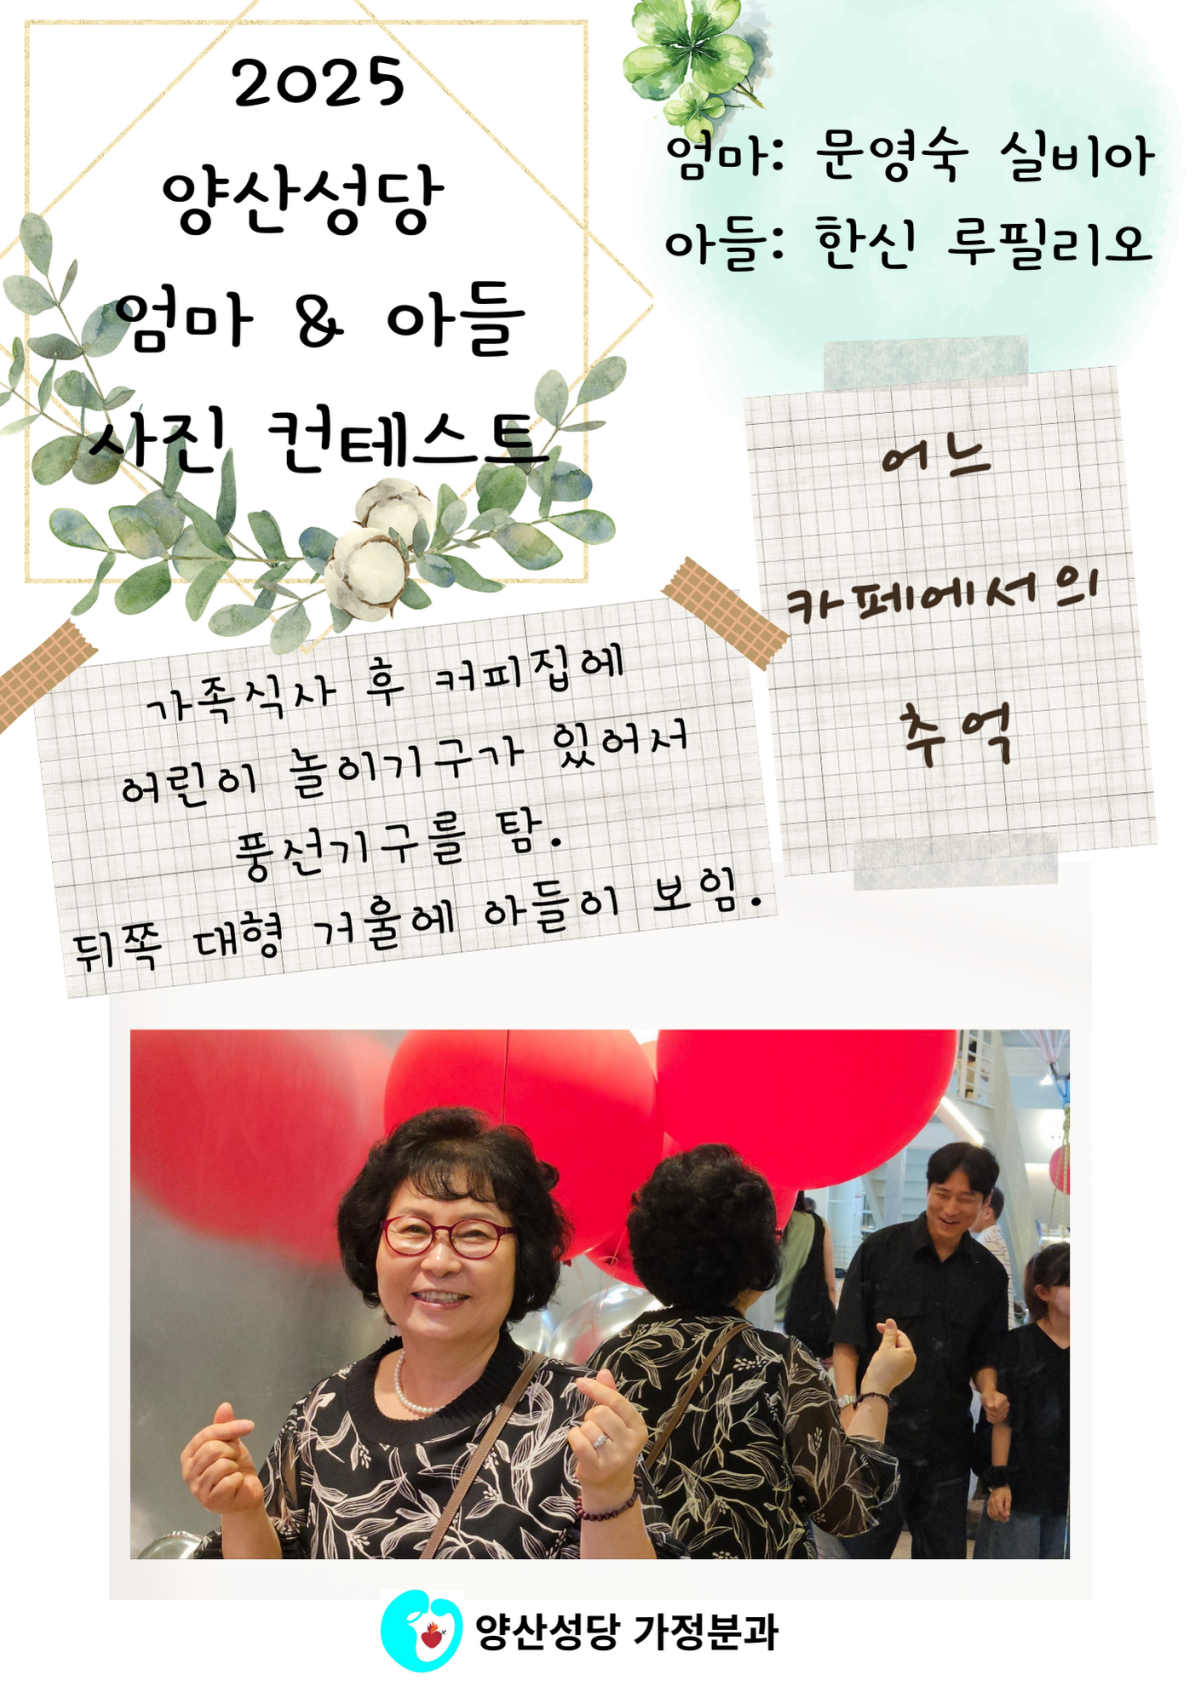 2025
양산성당
엄마 & 아들
사진 컨테스트
엄마: 문영숙 실비아
아들: 한신 루필리오
어느
카페에서의
추억
가족식사 후 커피집에
어린이 놀이기구가 있어서
풍선기구를 탐.
뒤쪽 대형 거울에 아들이 보임.
양산성당 가정분과